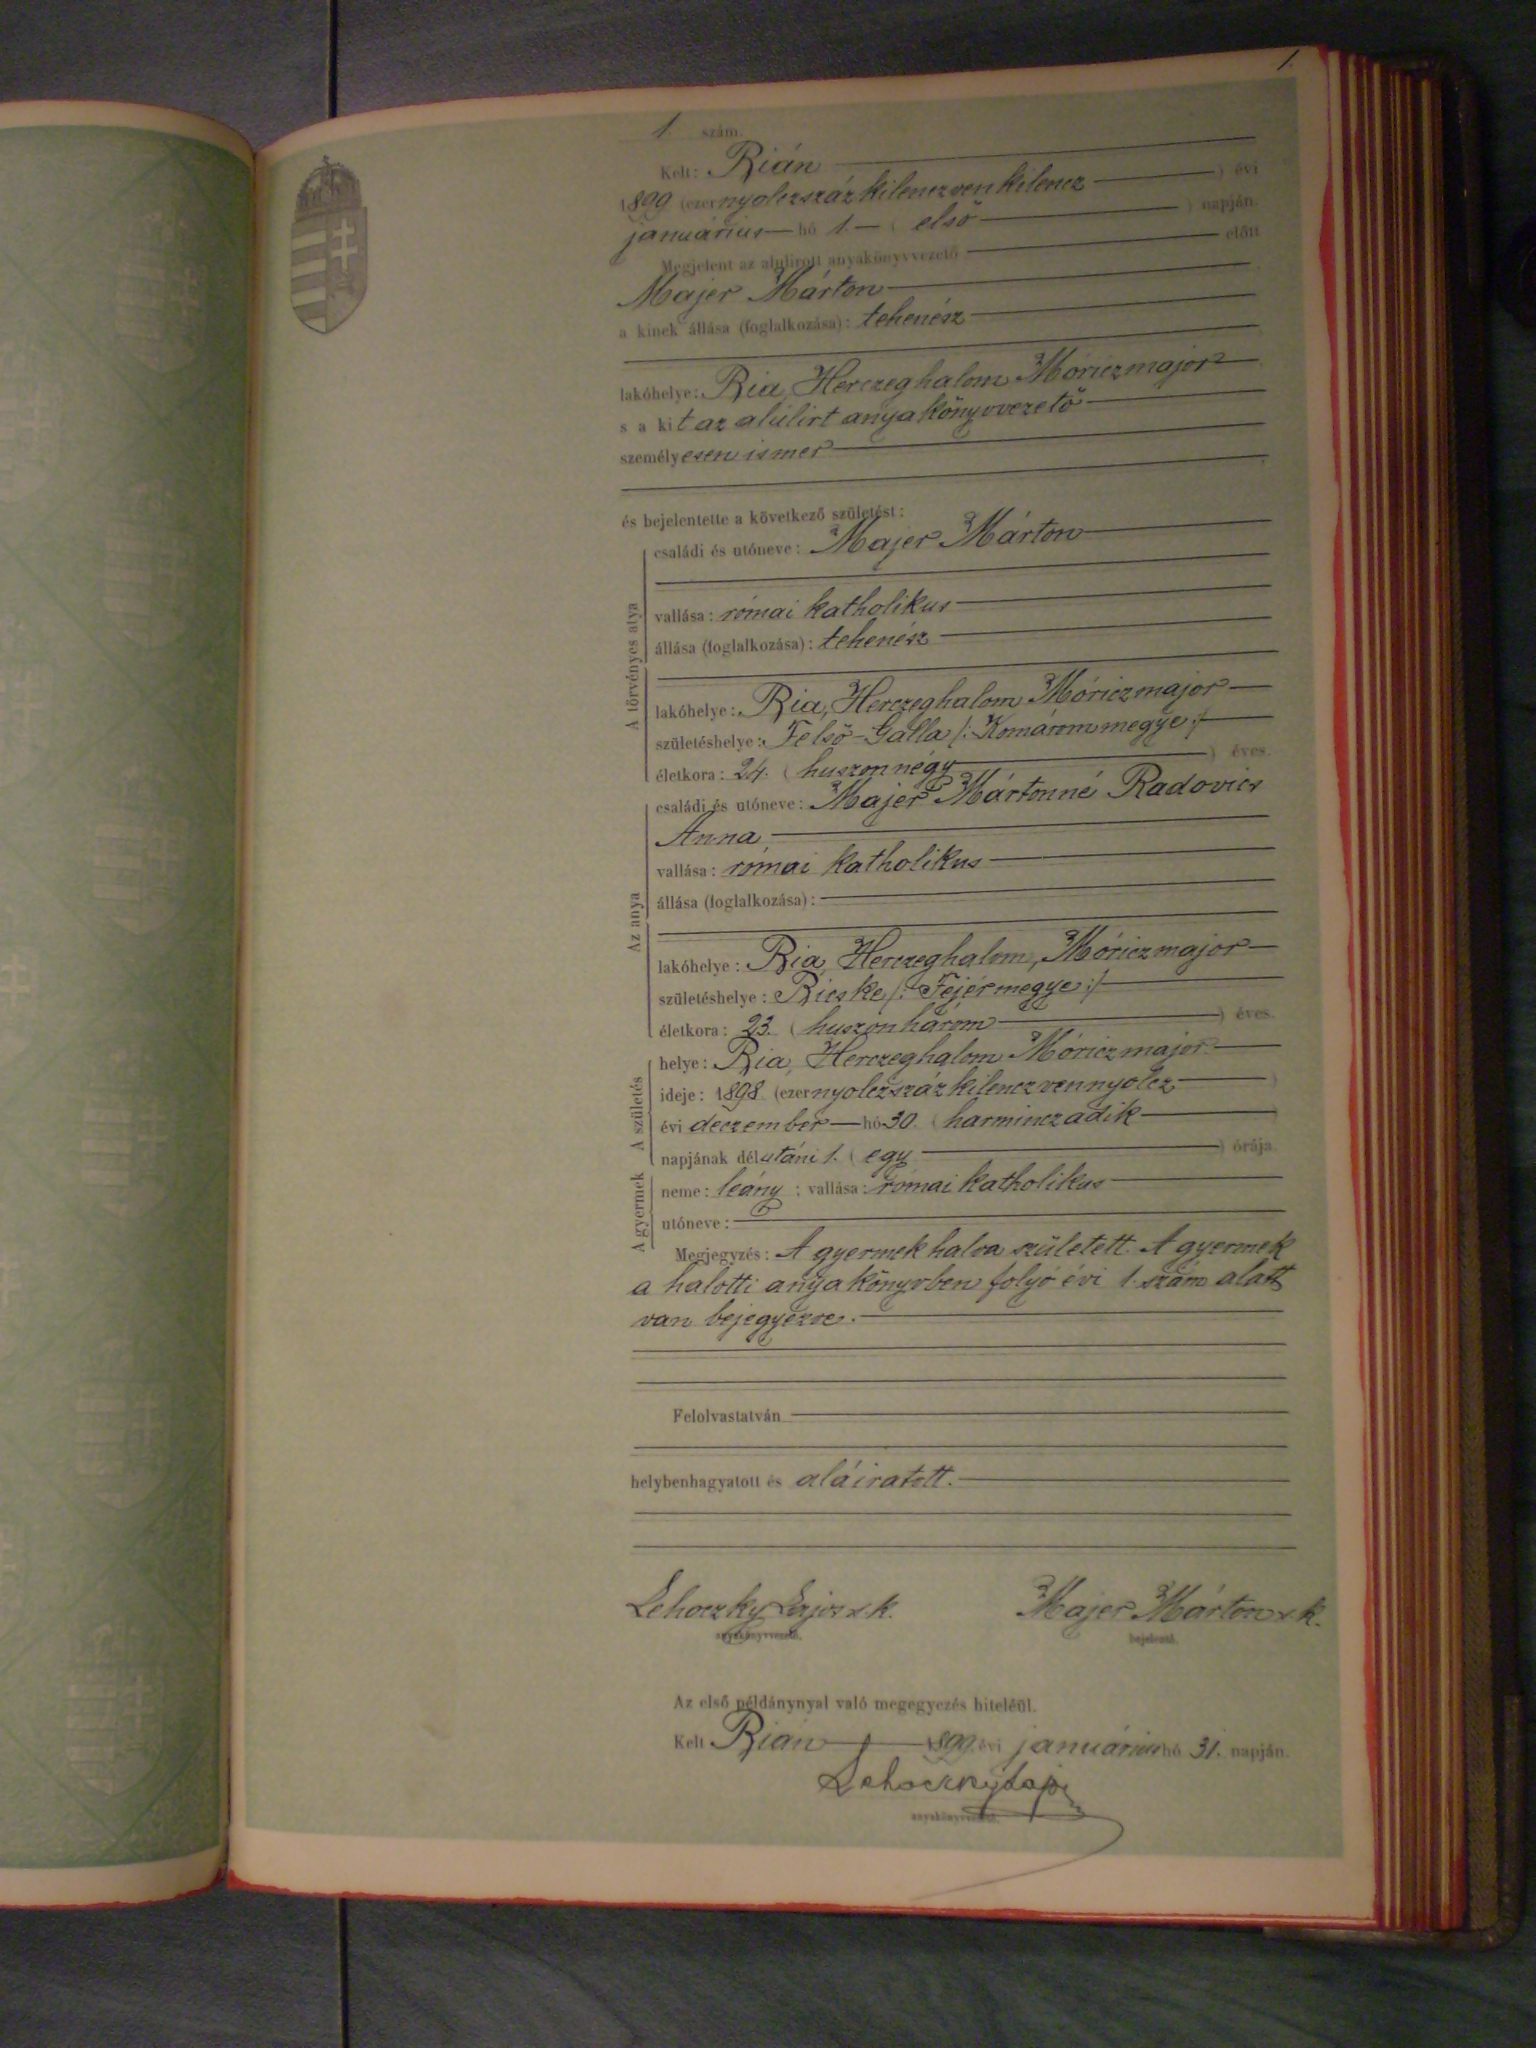 1.
1 szám.
Kelt: Bián
1899 (ezernyolczszázkilenczvenkilencz ) évi
január­ius hó 1. ( első ) napján.
Megjelent az alulirott anyakönyvvezető előtt
Majer Márton
a kinek állása (foglalkozása): tehenész
lakóhelye: Bia, Herczeghalom Móriczmajor
s a kit az alúlirt anyakönyvvezető
személyesen ismer
és bejelentette a következő születést:
A törvényes atya
családi és utóneve: Majer Márton
vallása: római katholikus
állása (foglalkozása): tehenész
lakóhelye: Bia, Herczeghalom Móriczmajor
születéshelye: Felső-Galla /: Komárommegye :/
életkora: 24. ( huszonnégy ) éves.
Az anya
családi és utóneve: Majer Mártonné Radovics
Anna
vallása: római katholikus
állása (foglalkozása):
lakóhelye: Bia, Herczeghalom, Móriczmajor
születéshelye: Bicske /: Fejérmegye :/
életkora: 23. ( huszonhárom ) éves.
A születés
helye: Bia, Herczeghalom Móriczmajor
ideje: 1898. (ezernyolczszázkilenczvennyolcz )
évi deczember hó 30. ( harminczadik )
napjának délutáni 1. ( egy ) órája.
A gyermek
neme: leány ; vallása: római katholikus
utóneve:
Megjegyzés: A gyermek halva született. A gyermek
a halotti anyakönyvben folyó évi 1. szám alatt
van bejegyezve.
Felolvastatván
helybenhagyatott és aláiratott.
Lehoczky Lajos s. k. Majer Márton s. k.
anyakönyvvezető. bejelentő.
Az első példánynyal való megegyezés hiteléül.
Kelt Bián 1899. évi január­ius hó 31. napján.
Lehoczky Lajos
anyakönyvvezető.